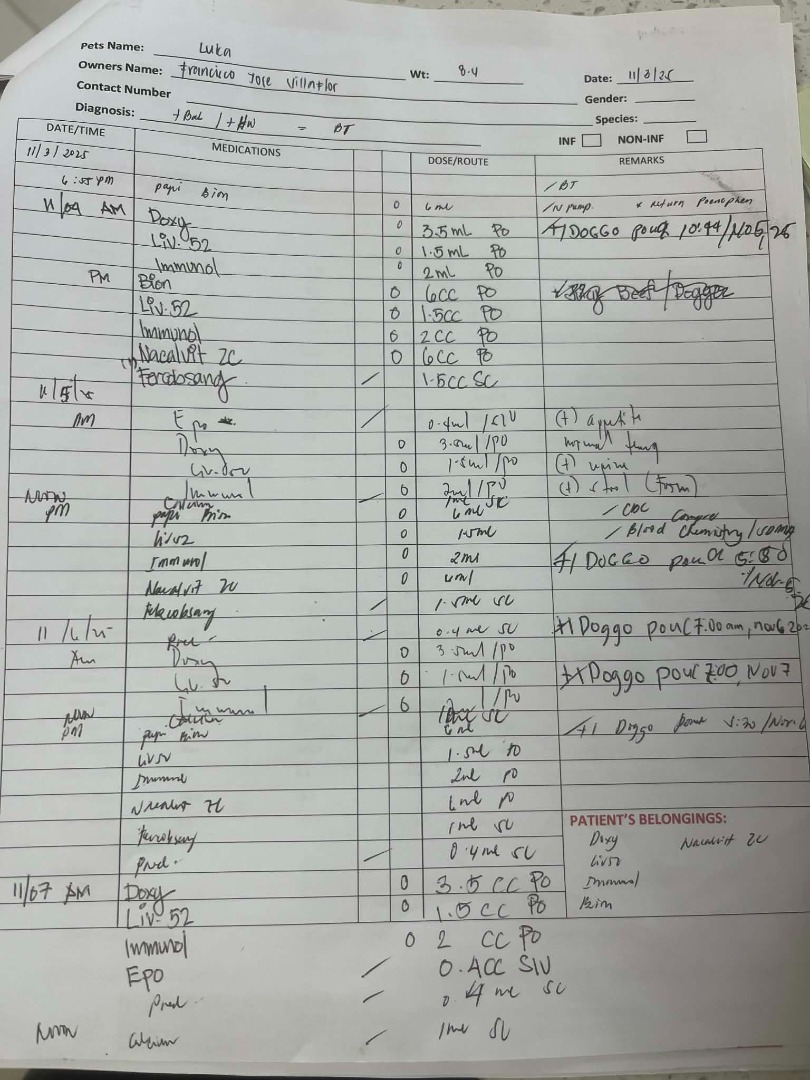 Pets Name: Luka
Owners Name: Francisco Jose Villaflor Wt: 8.4 Date: 11/3/25
Contact Number Gender:
Diagnosis: + / + HW = BT Species:
INF NON-INF
DATE/TIME MEDICATIONS DOSE/ROUTE REMARKS
11/3/2025
6:55 pm papi Bion / BT
11/04 AM 0 6 ml
Doxy 0 3.5 mL PO +1 DOGGO pouch 10:44/Nov5,25
Liv. 52 0 1.5 mL PO
Immunol 0 2 mL PO
PM Bion 0 6cc PO
Liv. 52 0 1.5cc PO
Immunol 0 2 CC PO
Nacalvit ZC 0 6cc PO
Ferobosang / 1.5CC SC
11/5/25
AM Epo / 0.4ml /SIV (+) appetite
Doxy 0 3.5ml/PO
Liv. 52 0 1.5ml/PO (+) urine
Immunol 0 2ml/PO (+) stool (Form)
Noon Calcium / 1ml SC
PM papi Bion 0 6ml / CBC
Liv52 0 1.5ml / Blood Chemistry
Immunol 0 2ml +1 DOGGO pouch
Nacalvit ZC 0 6ml
/ 1.5ml SC
11/6/25 Pred / 0.4 ml SC +1 Doggo pouch 7:00am, nov6
Am Doxy 0 3.5ml/PO
Liv. 52 0 1.5ml/PO Doggo pouch 7:00, Nov 7
Immunol 0 /PO
Noon Calcium / SC
PM papi Bion 6ml +1 Doggo pouch 5:30/Nov.6
Liv52 1.5ml PO
Immunol 2ml PO
Nacalvit ZC 6ml PO
1ml SC
Pred. / 0.4 ml SC
PATIENT'S BELONGINGS:
Doxy Nacalvit ZC
Liv52
Immunol
Bion
11/07 AM Doxy 0 3.5 CC PO
Liv-52 0 1.5 CC PO
Immunol 0 2 CC PO
Epo / 0.4CC SIV
Pred. / 0.4 ml SC
Noon Calcium / 1ml SC